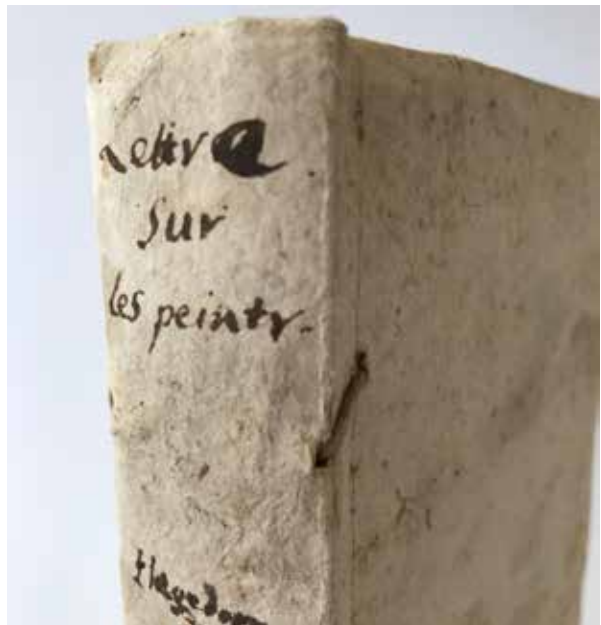 Lettre
sur
les peintr.
Hagedorn